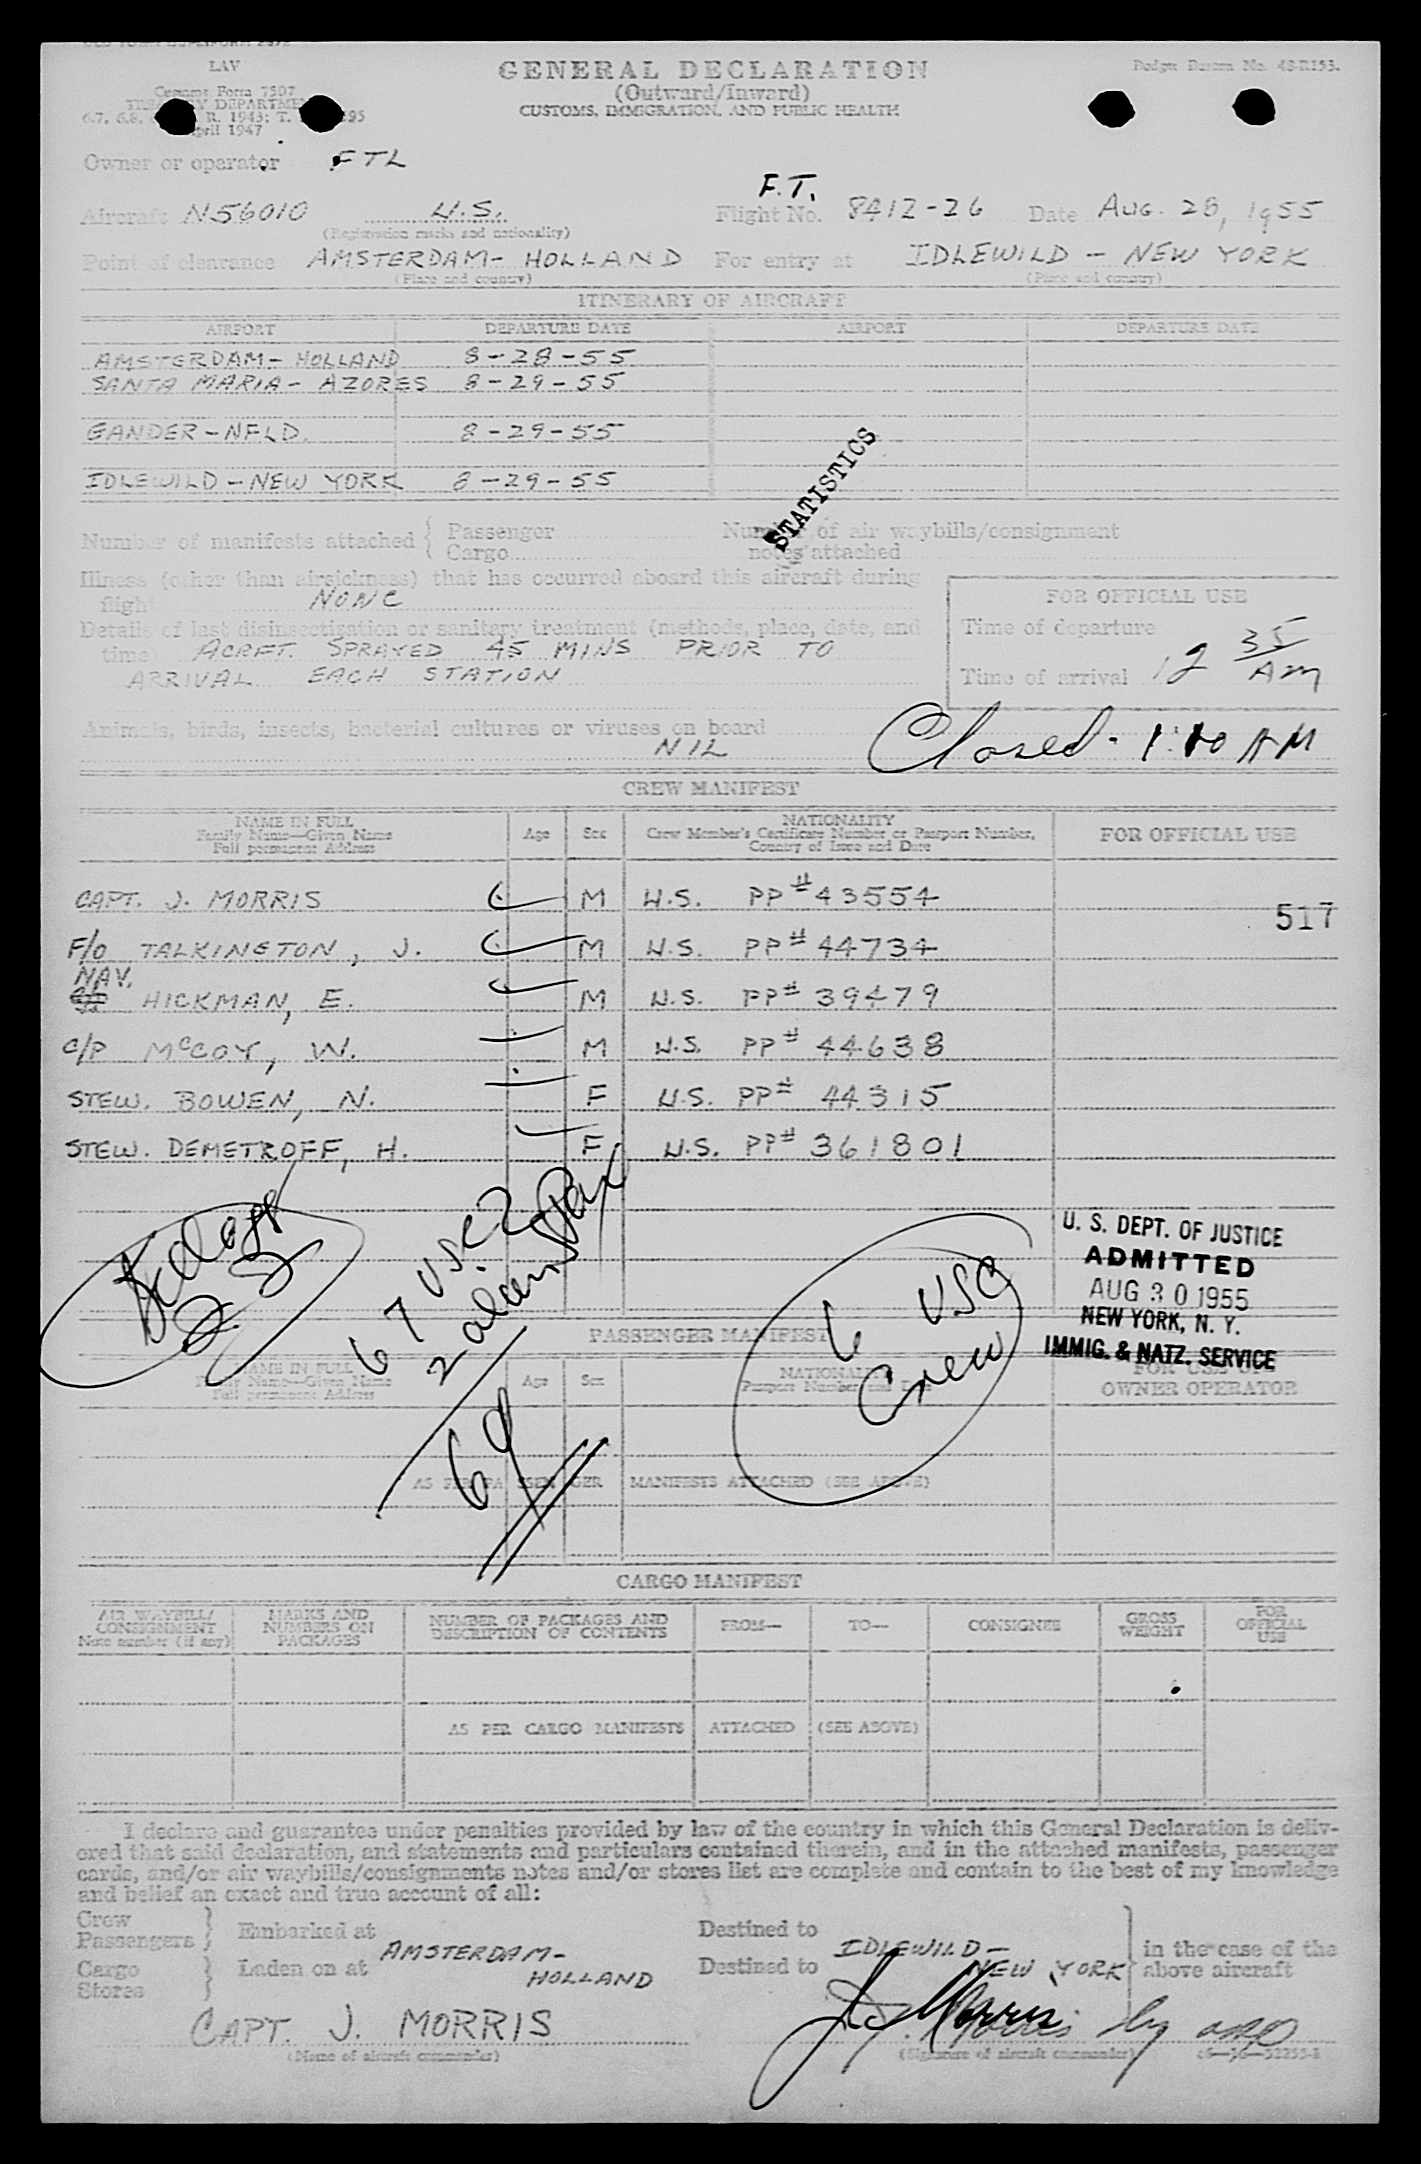 LAV
Customs Form 7507
TREASURY DEPARTMENT
April 1947
GENERAL DECLARATION
(Outward/Inward)
CUSTOMS, IMMIGRATION, AND PUBLIC HEALTH
Owner or operator FTL
F.T.
Aircraft N56010 U.S. Flight No. 8412-26 Date AUG. 28, 1955
(Registration marks and nationality)
Point of clearance AMSTERDAM - HOLLAND For entry at IDLEWILD - NEW YORK
(Place and country) (Place and country)
ITINERARY OF AIRCRAFT
AIRPORT DEPARTURE DATE AIRPORT DEPARTURE DATE
AMSTERDAM - HOLLAND 8-28-55
SANTA MARIA - AZORES 8-29-55
GANDER - NFLD. 8-29-55
IDLEWILD - NEW YORK 8-29-55
STATISTICS
Number of manifests attached { Passenger
Cargo
Number of air waybills/consignment
notes attached
Illness (other than airsickness) that has occurred aboard this aircraft during
flight NONE
Details of last disinsectization or sanitary treatment (methods, place, date, and
time) ACRFT. SPRAYED 45 MINS PRIOR TO
ARRIVAL EACH STATION
FOR OFFICIAL USE
Time of departure
Time of arrival 12 35 AM
Animals, birds, insects, bacterial cultures or viruses on board
NIL
Closed - 1:10 AM
CREW MANIFEST
NAME IN FULL
Family Name—Given Name
Full permanent Address
Age Sex
NATIONALITY
Crew Member's Certificate Number or Passport Number,
Country of Issue and Date
FOR OFFICIAL USE
CAPT. J. MORRIS M U.S. PP# 43554
517
F/O TALKINGTON, J. M U.S. PP# 44734
NAV.
HICKMAN, E. M U.S. PP# 39479
C/P McCOY, W. M U.S. PP# 44638
STEW. BOWEN, N. F U.S. PP# 44315
STEW. DEMETROFF, H. F U.S. PP# 361801
67 USC
2 alien Pax
69
6 USC
Crew
U. S. DEPT. OF JUSTICE
ADMITTED
AUG 30 1955
NEW YORK, N. Y.
IMMIG. & NATZ. SERVICE
PASSENGER MANIFEST
NAME IN FULL
Family Name—Given Name
Full permanent Address
Age Sex
NATIONALITY
Passport Number and Date
FOR USE OF
OWNER OPERATOR
AS PER PASSENGER MANIFESTS ATTACHED (SEE ABOVE)
CARGO MANIFEST
AIR WAYBILL/
CONSIGNMENT
Note number (if any)
MARKS AND
NUMBERS ON
PACKAGES
NUMBER OF PACKAGES AND
DESCRIPTION OF CONTENTS
FROM—
TO—
CONSIGNEE
GROSS
WEIGHT
FOR
OFFICIAL
USE
AS PER CARGO MANIFESTS ATTACHED (SEE ABOVE)
I declare and guarantee under penalties provided by law of the country in which this General Declaration is deliv-
ered that said declaration, and statements and particulars contained therein, and in the attached manifests, passenger
cards, and/or air waybills/consignments notes and/or stores list are complete and contain to the best of my knowledge
and belief an exact and true account of all:
Crew
Passengers } Embarked at
Cargo
Stores } Laden on at
AMSTERDAM -
HOLLAND
Destined to
Destined to
IDLEWILD -
NEW YORK
in the case of the
above aircraft
CAPT. J. MORRIS
(Name of aircraft commander)
J. Morris
(Signature of aircraft commander)